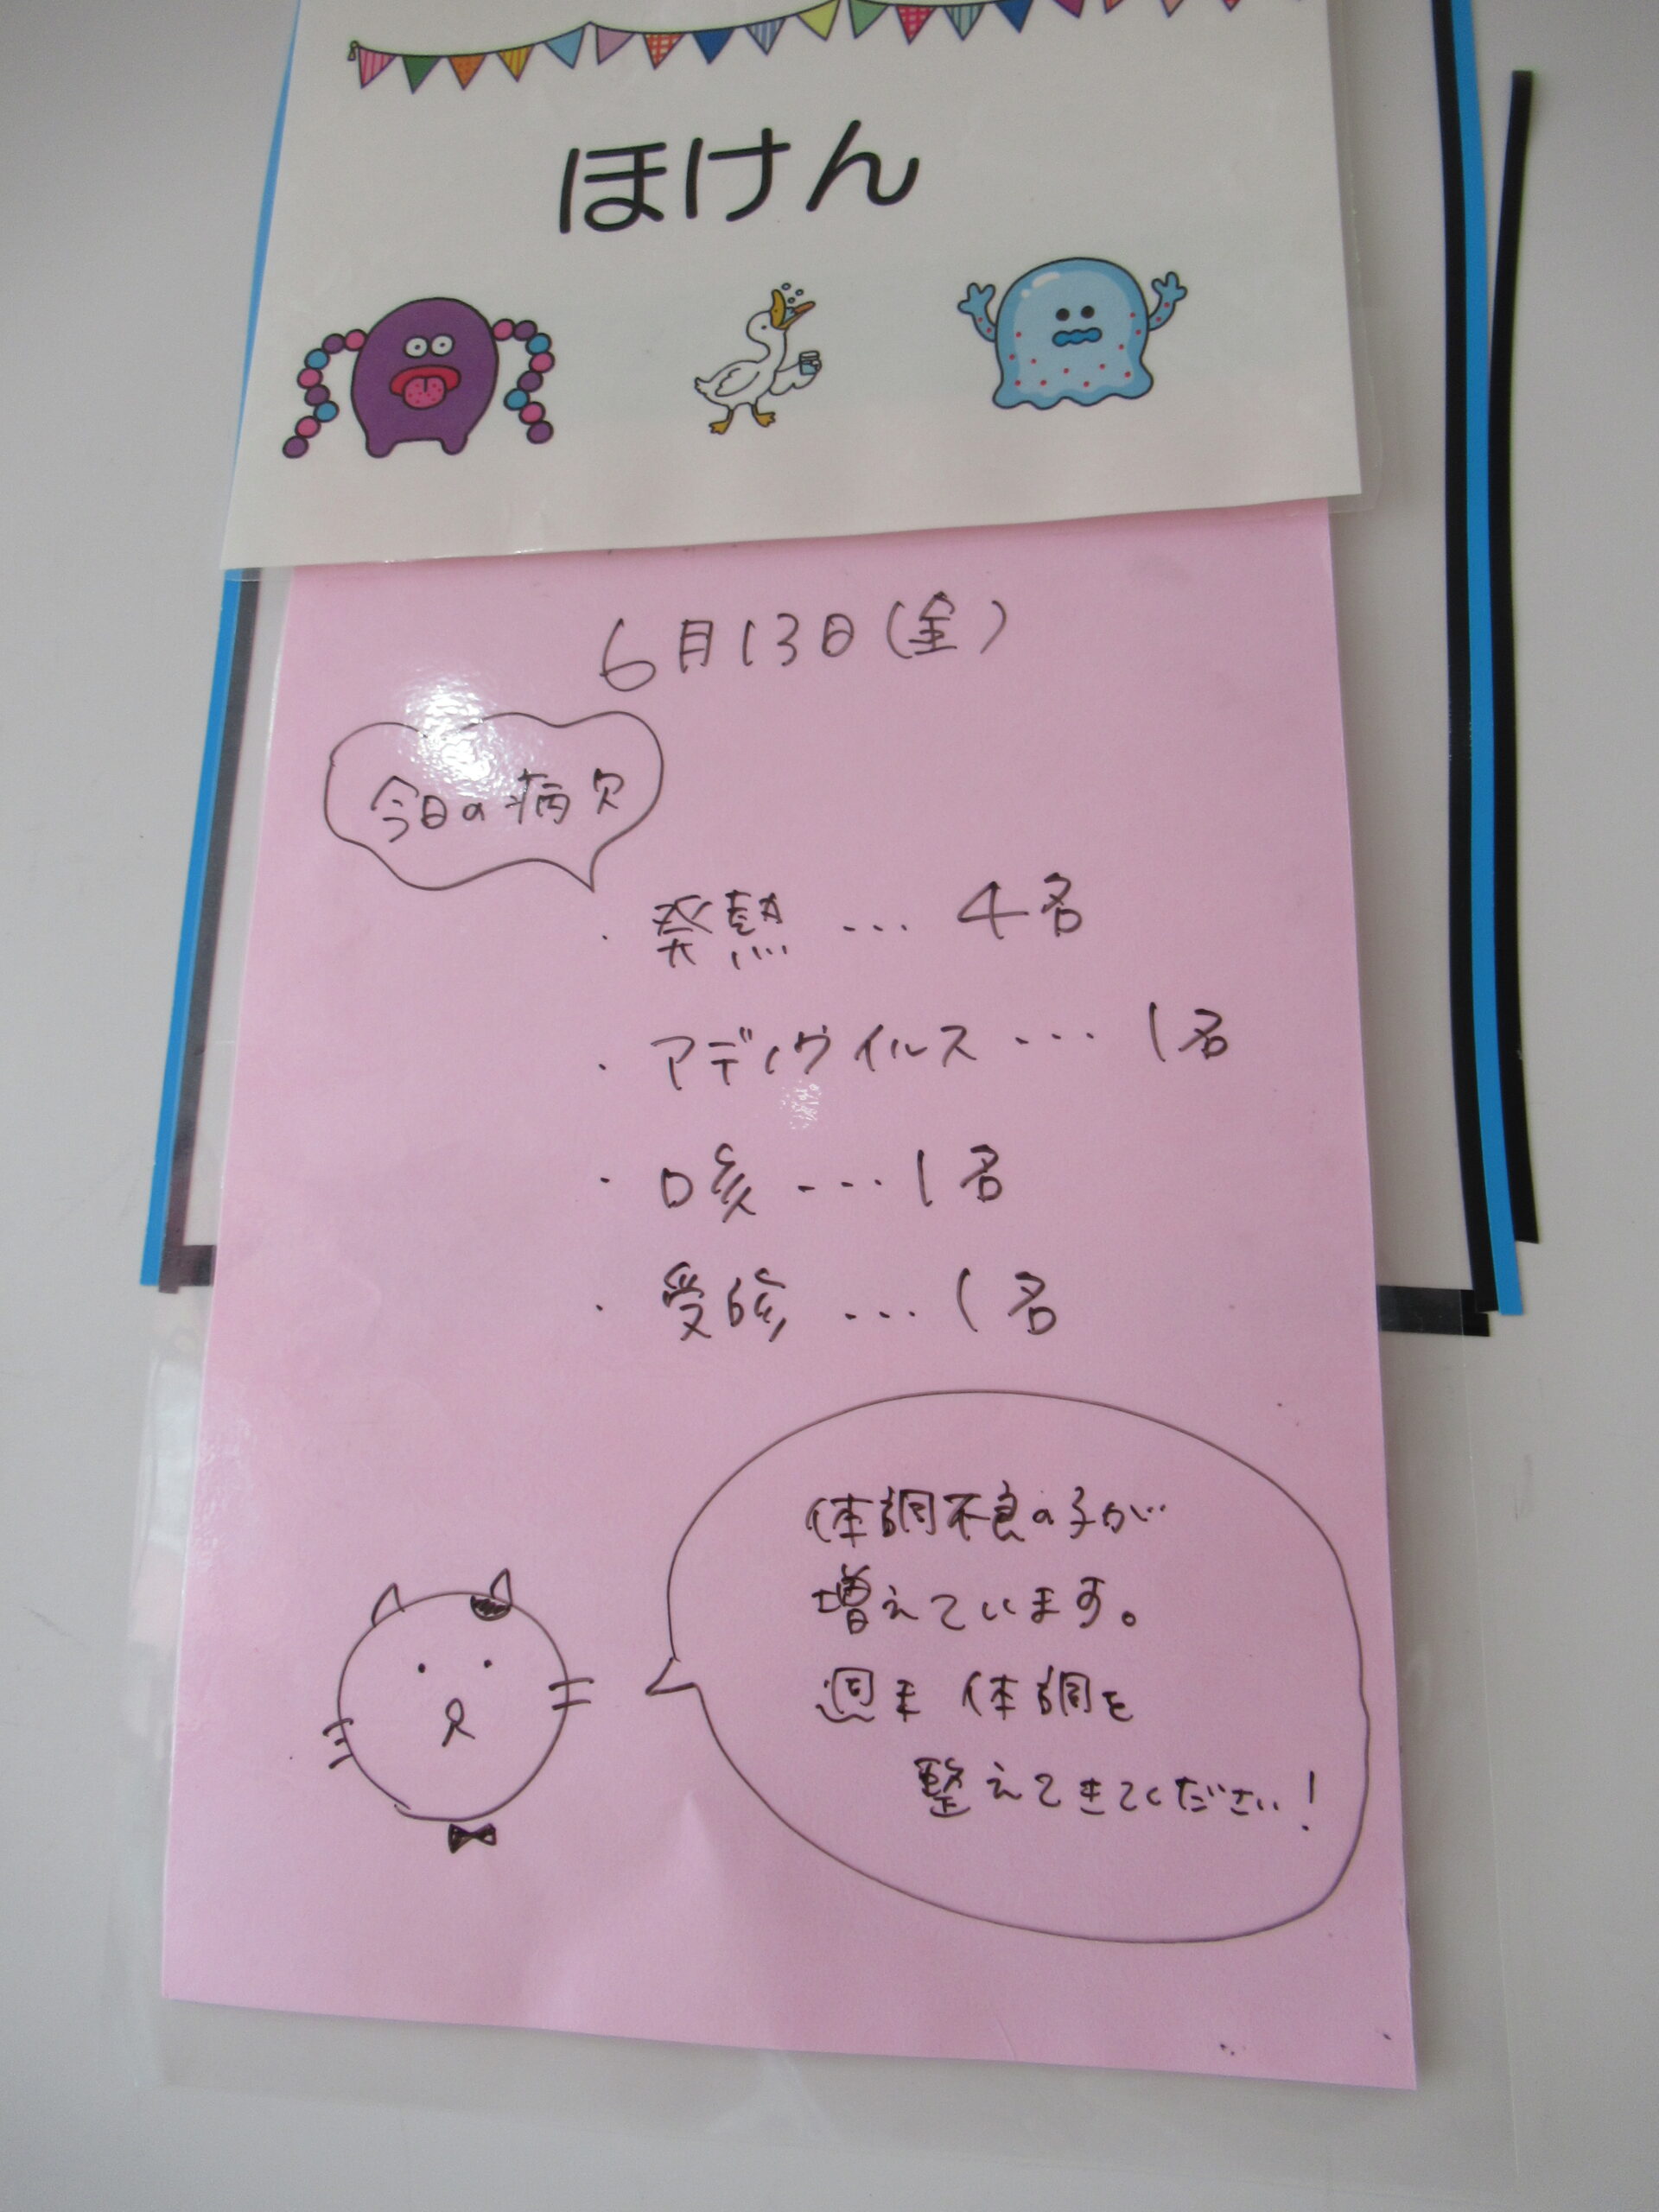 ほけん
6月13日(金)
今日の病欠
・発熱 … 4名
・アデノウイルス … 1名
・咳 … 1名
・受診 … 1名
体調不良の子が
増えています。
週末 体調を
整えてきてください!